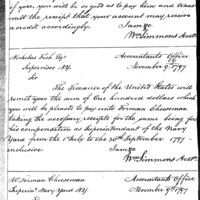 of you, you will be so good as to pay him and trans
mit the receipt that your account may receive
a credit accordingly. I am &c
Wm Simmons Acct.
Nicholas Fish Esqr Accountants Office
Supervisor NY. November 9th 1797
Sir
The Treasurer of the United States will
remit you the sum of One hundred dollars which
you will be pleased to pay unto Forman Cheeseman
taking the necessary receipts for the same being for
his compensation as Superintendant of the Navy
Yard from the 1st July to the 30th September 1797
inclusive I am &c
Wm Simmons Acct.
Mr Forman Cheeseman Accountants Office
Superint Navy Yard NY. November 9th 1797